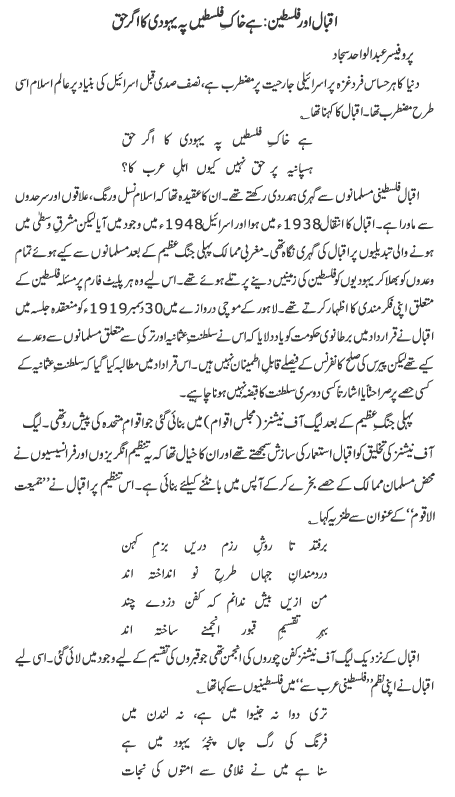 اقبال اور فلسطین: ہے خاکِ فلسطیں پہ یہودی کا اگر حق
پروفیسر عبدالواحد سجاد
دنیا کا ہر حساس فرد غزہ پر اسرائیلی جارحیت پر مضطرب ہے، نصف صدی قبل اسرائیل کی بنیاد پر عالم اسلام اسی
طرح مضطرب تھا۔ اقبال کا کہنا تھا
ہے خاکِ فلسطیں پہ یہودی کا اگر حق
ہسپانیہ پر حق نہیں کیوں اہلِ عرب کا؟
اقبال فلسطینی مسلمانوں سے گہری ہمدردی رکھتے تھے۔ ان کا عقیدہ تھا کہ اسلام نسل و رنگ، علاقوں اور سرحدوں
سے ماورا ہے۔ اقبال کا انتقال 1938ء میں ہوا اور اسرائیل 1948ء میں وجود میں آیا لیکن مشرقِ وسطیٰ میں
ہونے والی تبدیلیوں پر اقبال کی گہری نگاہ تھی۔ مغربی ممالک پہلی جنگ عظیم کے بعد مسلمانوں سے کیے ہوئے تمام
وعدوں کو بھلا کر یہودیوں کو فلسطین کی زمینیں دینے پر تلے ہوئے تھے۔ اس لیے وہ ہر پلیٹ فارم پر مسئلہ فلسطین کے
متعلق اپنی فکر مندی کا اظہار کرتے تھے۔ لاہور کے موچی دروازے میں 30 دسمبر 1919ء کو منعقدہ جلسہ میں
اقبال نے قرارداد میں برطانوی حکومت کو یاد دلایا کہ اس نے سلطنتِ عثمانیہ اور ترکی سے متعلق مسلمانوں سے وعدے
کیے تھے لیکن پیرس کی صلح کانفرنس کے فیصلے قابلِ اطمینان نہیں ہیں۔ اس قرارداد میں مطالبہ کیا گیا کہ سلطنتِ عثمانیہ کے
کسی حصے پر صراحتاً یا اشارتاً کسی دوسری سلطنت کا قبضہ نہیں ہونا چاہیے۔
پہلی جنگِ عظیم کے بعد لیگ آف نیشنز (مجلس اقوام) میں بنائی گئی جو اقوام متحدہ کی پیش رو تھی۔ لیگ
آف نیشنز کی تخلیق کو اقبال استعمار کی سازش سمجھتے تھے اور ان کا خیال تھا کہ یہ تنظیم انگریزوں اور فرانسیسیوں نے
محض مسلمان ممالک کے حصے بخرے کر کے آپس میں بانٹنے کیلئے بنائی ہے۔ اس تنظیم پر اقبال نے ’’جمعیت
الاقوم‘‘ کے عنوان سے طنزیہ کہا
برفتد تا روشِ رزم دریں بزمِ کہن
دردمندانِ جہاں طرحِ نو انداختہ اند
من ازیں بیش ندانم کہ کفن دزدے چند
بہرِ تقسیمِ قبور انجمنے ساختہ اند
اقبال کے نزدیک لیگ آف نیشنز کفن چوروں کی انجمن تھی جو قبروں کی تقسیم کے لیے وجود میں لائی گئی۔ اسی لیے
اقبال نے اپنی نظم ’’فلسطینی عرب سے‘‘ میں فلسطینیوں سے کہا تھا
تری دوا نہ جنیوا میں ہے، نہ لندن میں
فرنگ کی رگِ جاں پنجۂ یہود میں ہے
سنا ہے میں نے غلامی سے امتوں کی نجات